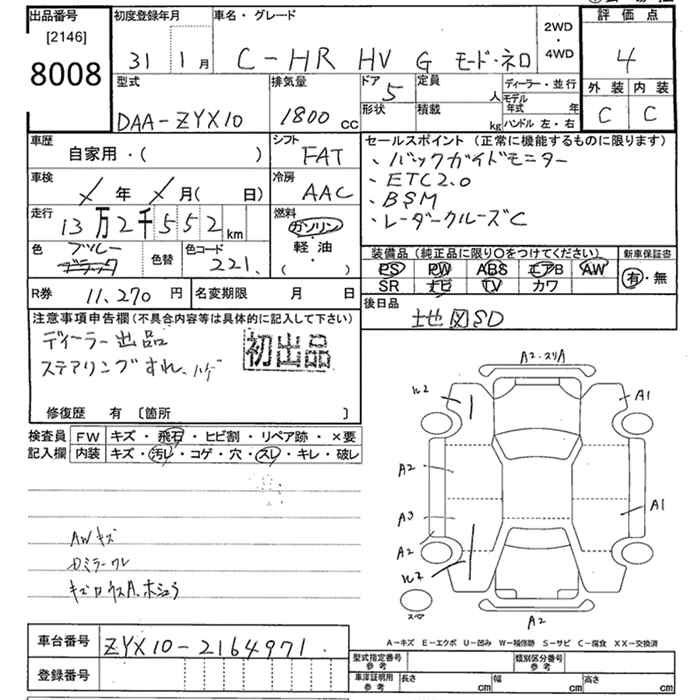 出品番号
[2146]
8008
初度登録年月
31年 1月
車名・グレード
C-HR HV G モード・ネロ
2WD
・
4WD
評価点
4
外装 内装
C C
型式
DAA-ZYX10
排気量
1800 cc
ドア
5
形状
定員
人
積載
kg
ディーラー・並行
モデル年式 年
ハンドル 左・右
車歴
自家用・( )
シフト
FAT
車検
年 月( 日)
冷房
AAC
走行
13万2千552km
燃料
ガソリン・
軽油・
( )
色
ブルー
ブラック
色替
色コード
221.
R券
11,270 円
名変期限 月 日
セールスポイント (正常に機能するものに限ります)
・バックガイドモニター
・ETC2.0
・BSM
・レーダークルーズC
装備品 (純正品に限り○をつけてください)
新車保証書
PS PW ABS エアB AW
SR ナビ TV カワ
有・無
後日品
地図SD
注意事項申告欄(不具合内容等は具体的に記入して下さい)
ディーラー出品
ステアリングすれ、ハゲ
初出品
修復歴 有 [箇所 ]
検査員 FW キズ・飛石・ヒビ割・リペア跡・×要
記入欄 内装 キズ・汚レ・コゲ・穴・スレ・キレ・破レ
AWキズ
A2・スリA
A1
A2
A3
A2
A1
A2
スペア
A-キズ E-エクボ U-凹み W-補修跡 S-サビ C-腐食 XX-交換済
車台番号
ZYX10-2164971.
登録番号
型式指定番号
参考
類別区分番号
参考
車庫証明用
参考
長さ cm
幅 cm
高さ cm